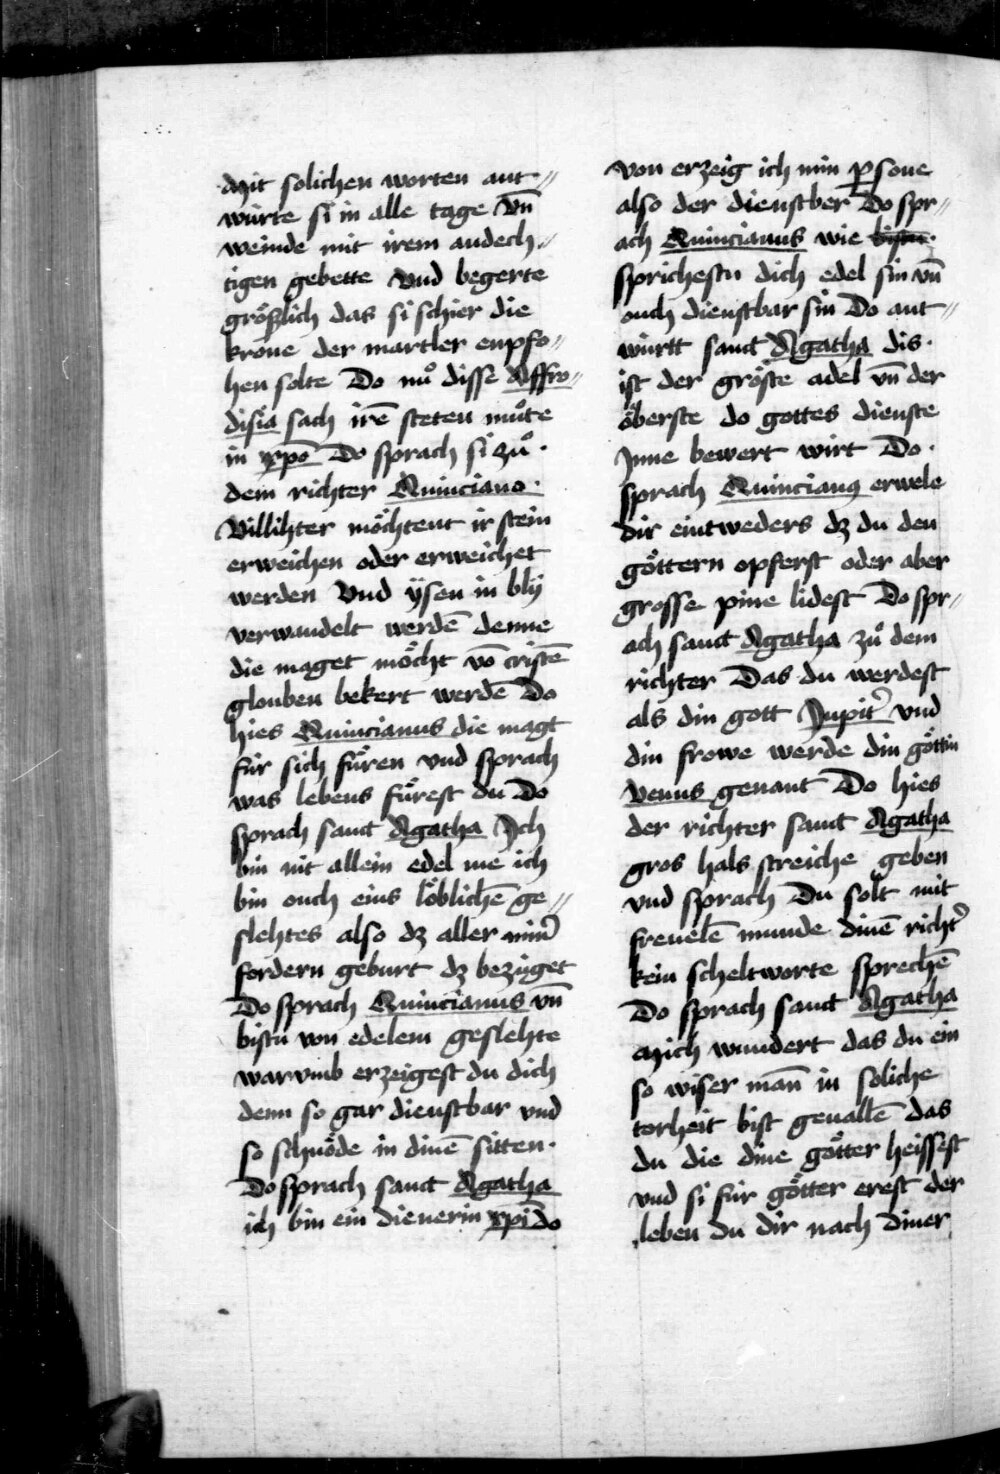 Mit solichen worten ant〃
würte si in alle tage vn̄
weinde mit irem andech〃
tigen gebette vnd begerte
größlich das si schier die
krone der martler enpfo〃
hen solte Do nuͦ disse Affro〃
disia sach irē steten muͦte
in xp̄o Do sprach si zuͦ ·
dem richter Quinciano ·
Villihter möchtent ir stein
erweichen oder erweichet
werden Vnd ÿsen in blÿ
verwandelt werdē denne
die maget möcht vō cristē
glouben bekert werdē Do
hies Quincianus die magt
für sich füren vnd sprach
was lebens fürest du Do
sprach sanct Agatha Ich
bin nit allein edel me ich
bin ouch eins löblichē ge〃
slehtes also dz aller min͛
fordern geburt dz bezüget
Do sprach Quincianus vn̄
bistu von edelem geslehte
warvmb erzeigest du dich
denn so gar dienstbar vnd
so schnöde in dinē sitten ·
Do sprach sanct Agatha
ich bin ein dienerin xp̄i do
von erzeig ich min ꝑsone
also der dienstber Do spr〃
ach Quincianus wie bistu ·
sprichestu dich edel sin vn̄
ouch dienstbar sin Do ant〃
württ sanct Agatha dis ·
ist der gröste adel vn̄ der
öberste do gottes dienste
Inne bewert wirt Do ·
sprach Quincianꝰ erwele
dir eintweders dz du den
göttern opferst oder aber
grosse pine lidest Do spr〃
ach sanct Agatha zuͦ dem
richter Das du werdest
als din gott Jupit͛ vnd
din frowe werde din göttin
Venus genant Do hies
der richter sanct Agatha
gros hals streiche geben
vnd sprach Du solt mit
freuelē munde dinē richt͛
kein scheltworte sprechē
Do sprach sanct Agatha
Mich wundert das du ein
so wiser man̄ in soliche
torheit bist geuallē das
du die dine götter heissest
vnd si für götter erest der
leben du dir nach diner